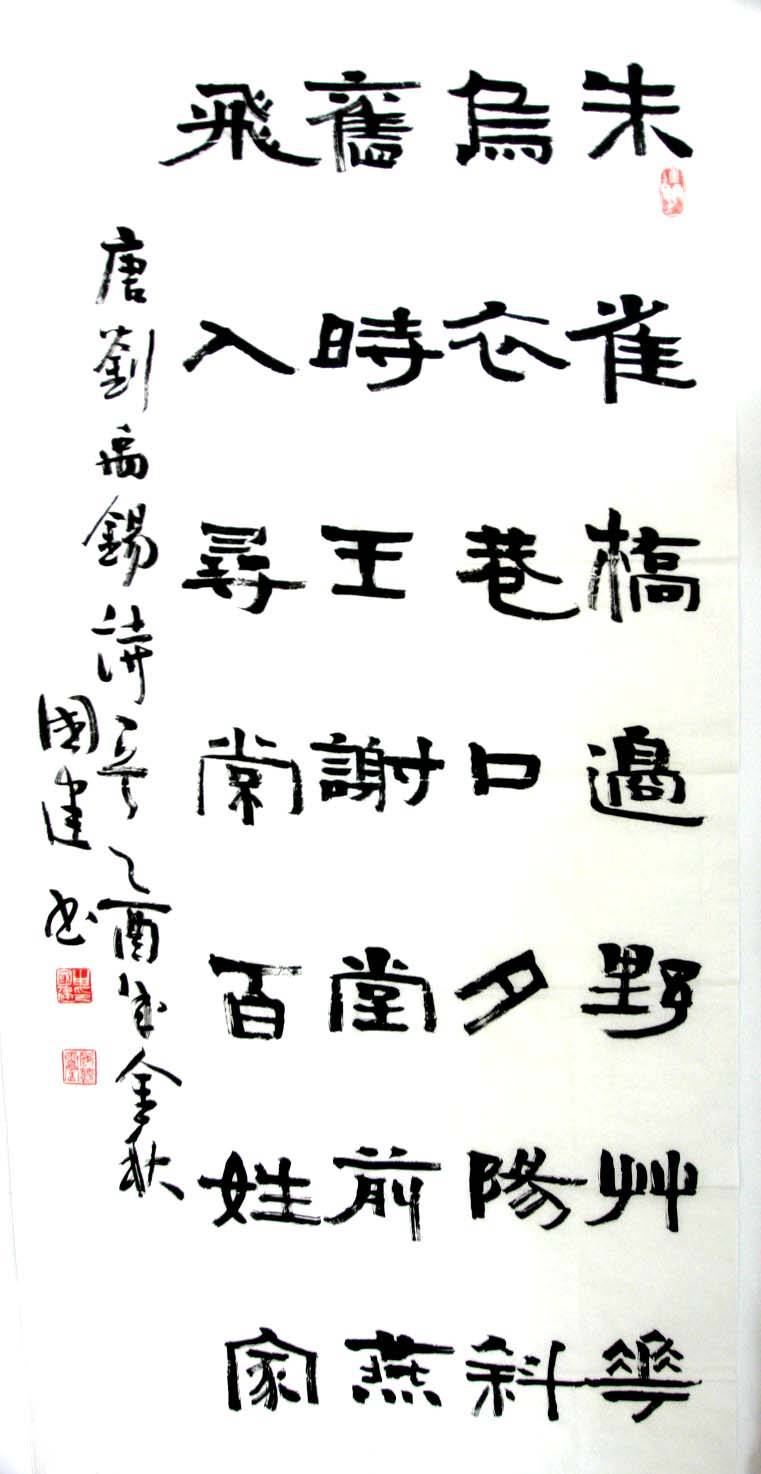 朱雀橋邊野艸華
烏衣巷口夕陽斜
舊時王謝堂前燕
飛入尋常百姓家
唐劉禹錫詩一首乙酉年金秋
國建書